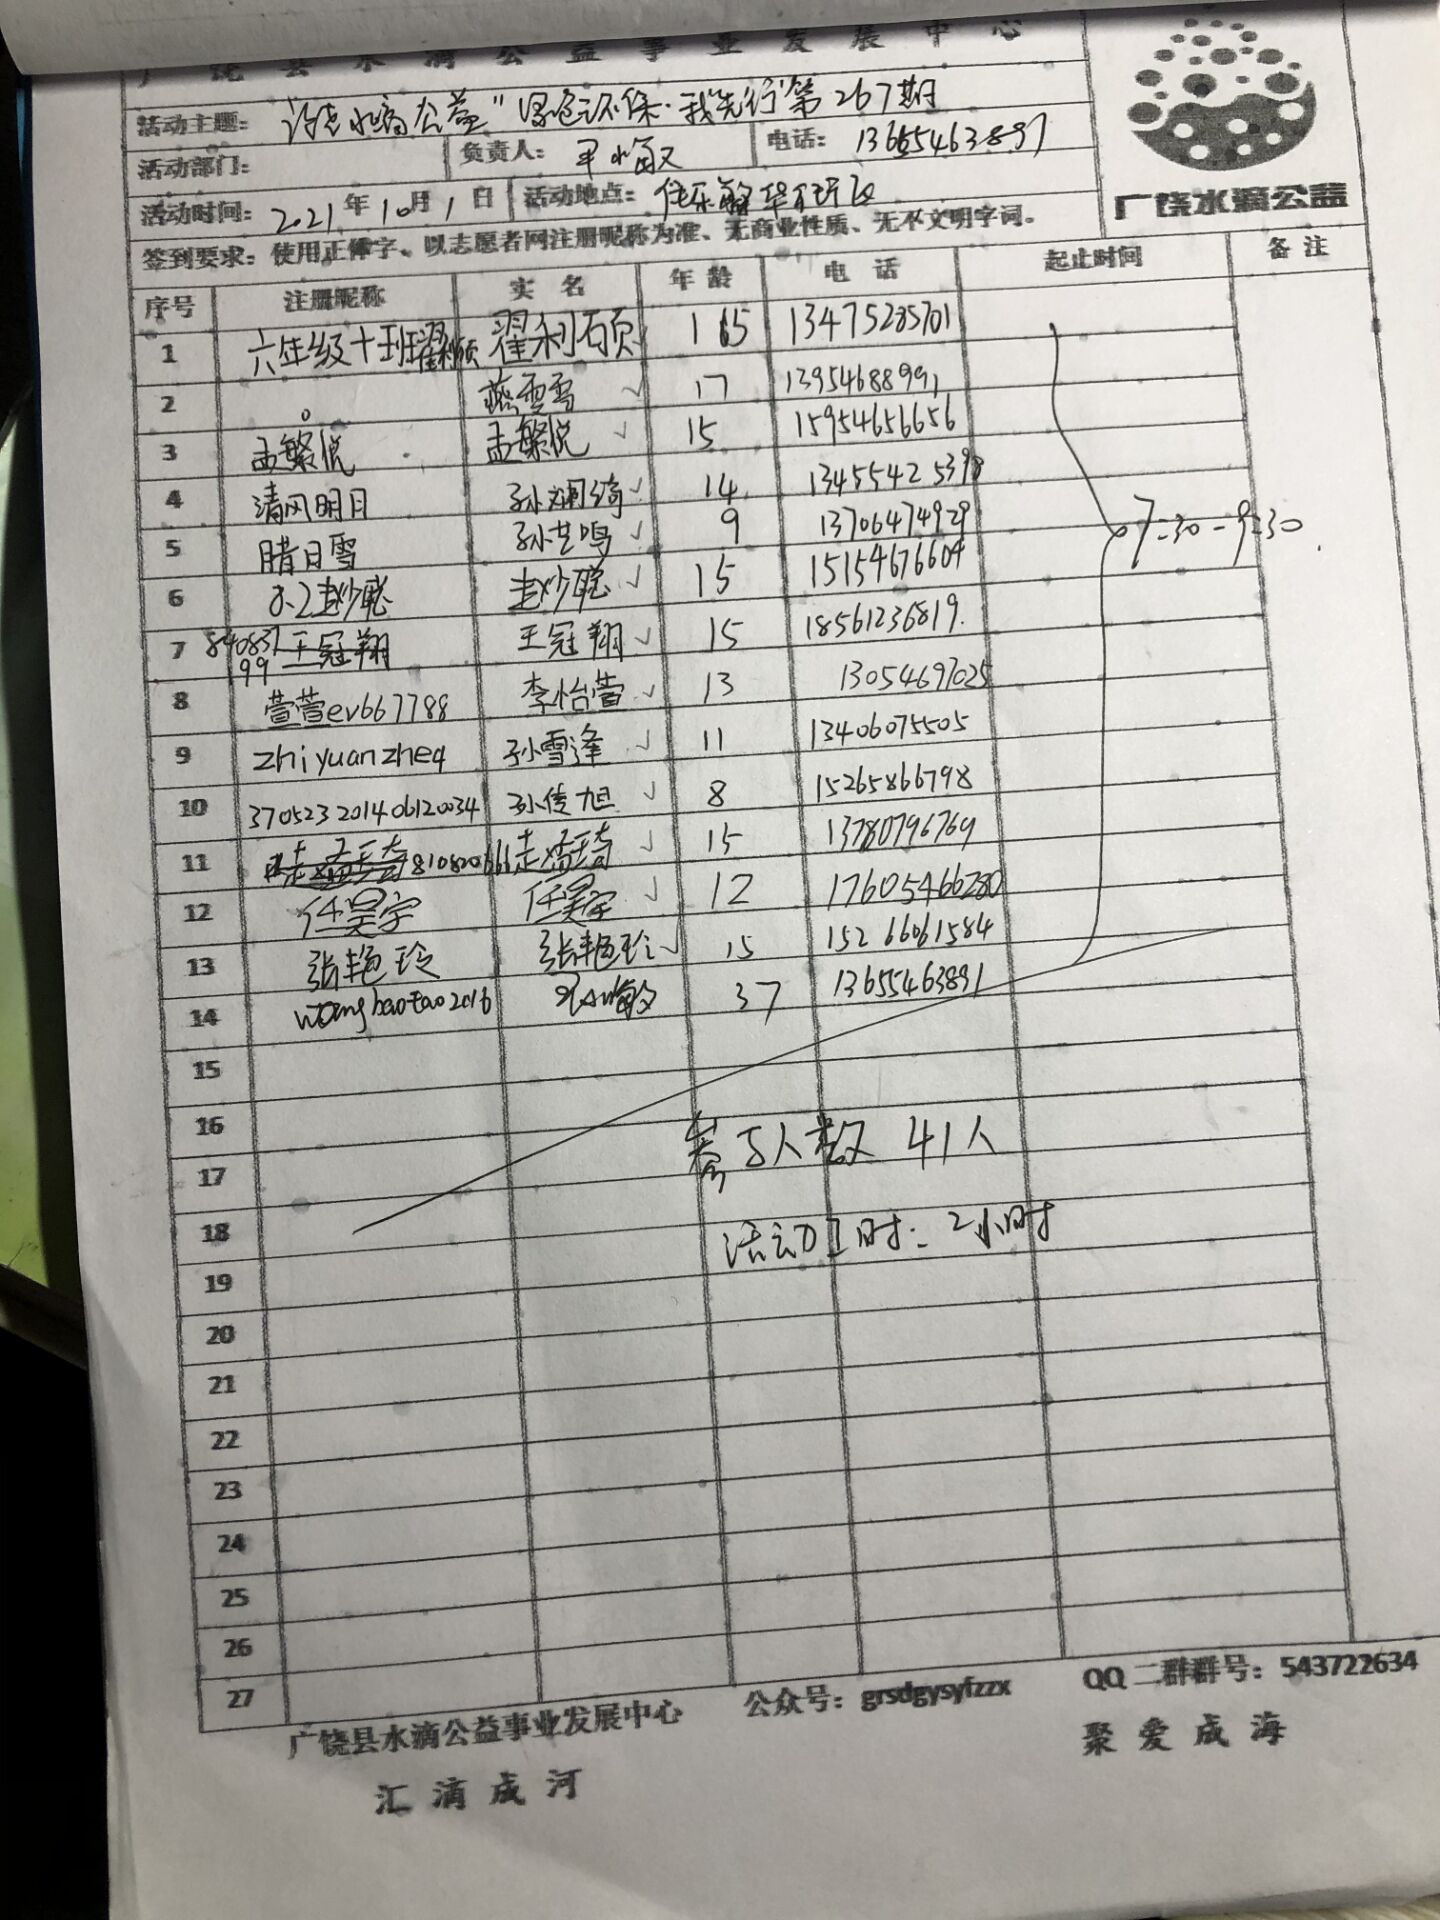 广饶县水滴公益事业发展中心
活动主题： 广饶水滴公益"绿色环保·我先行"第267期
活动部门： 负责人： 电话：13655463891
活动时间：2021年10月1日 活动地点： 佳乐繁华
广饶水滴公益
签到要求：使用正体字、以志愿者网注册昵称为准、无商业性质、无不文明字词。
序号 注册昵称 实名 年龄 电话 起止时间 备注
1 六年级十班翟利硕 翟利硕 15 13475285701
2 。 燕雪雪 ✓ 17 13954688991
3 孟繁悦 孟繁悦 ✓ 15 15954656656
4 清风明月 孙斓绮 ✓ 14 13455425398
5 晴日雪 孙艺鸣 ✓ 9 13706474929
07:30-9:30
6 赵妙聪 赵妙聪 ✓ 15 15154676604
7 84083799王冠翔 王冠翔 ✓ 15 18561236819
8 萱萱ev667788 李怡萱 ✓ 13 13054697025
9 zhiyuanzheq 孙雪逢 ✓ 11 13406075505
10 370523201406120034 孙传旭 ✓ 8 15265866798
11 810820661 ✓ 15 13780796769
12 任昊宇 任昊宇 ✓ 12 17605466280
13 张艳玲 张艳玲 ✓ 15 15266061584
14 wangbaotao2016 37 13655463891
15
16
参与人数 41人
17
18
活动工时：2小时
19
20
21
22
23
24
25
26
27
广饶县水滴公益事业发展中心 公众号：grsdgysyfzzx QQ二群群号：543722634
汇滴成河 聚爱成海